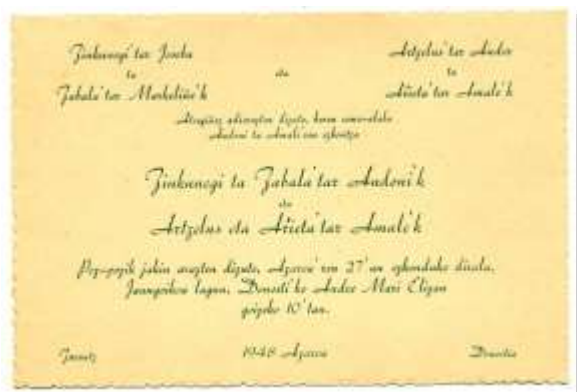 Zinkunegi'tar Joseba
Artzelus'tar Ander
ta
eta
ta
Zabala'tar Markeliñe'k
Añeta'tar Amale'k
Atsegiñez adierazten dizute, beren seme-alaba
Andoni ta Amale'ren ezkontza
Zinkunegi ta Zabala'tar Andoni'k
eta
Artzelus eta Añeta'tar Amale'k
Poz-pozik jakin arazten dizute, Azaroa'ren 27'an ezkonduko dirala,
Jaungoikoa lagun, Donosti'ko Andre Mari Elizan
goizeko 10'tan.
1948 Azaroa
Donostia